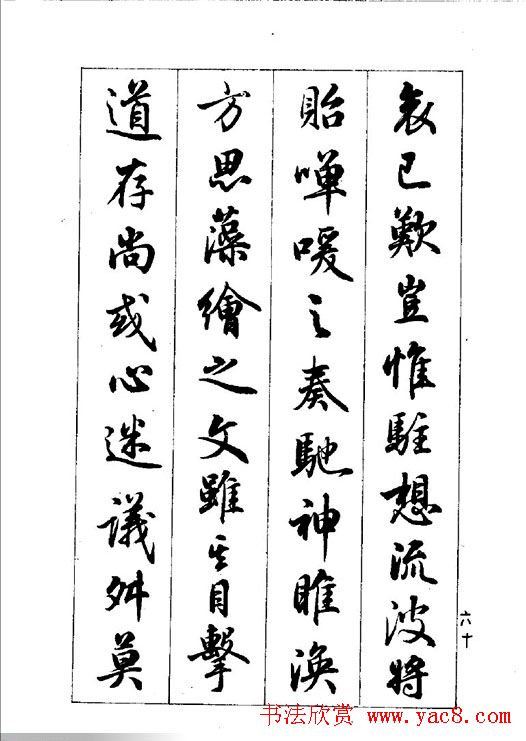 哀已歎豈惟駐想流波將
貽嘽喛之奏馳神睢渙
方思藻繪之文雖其目擊
道存尚或心迷議舛莫
六十
书法欣赏 www.yac8.com